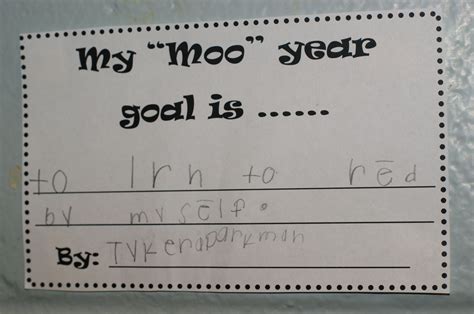 My “Moo” year
goal is ......
to lrn to rēd
by mysēlf.
By: TyKeraparkman